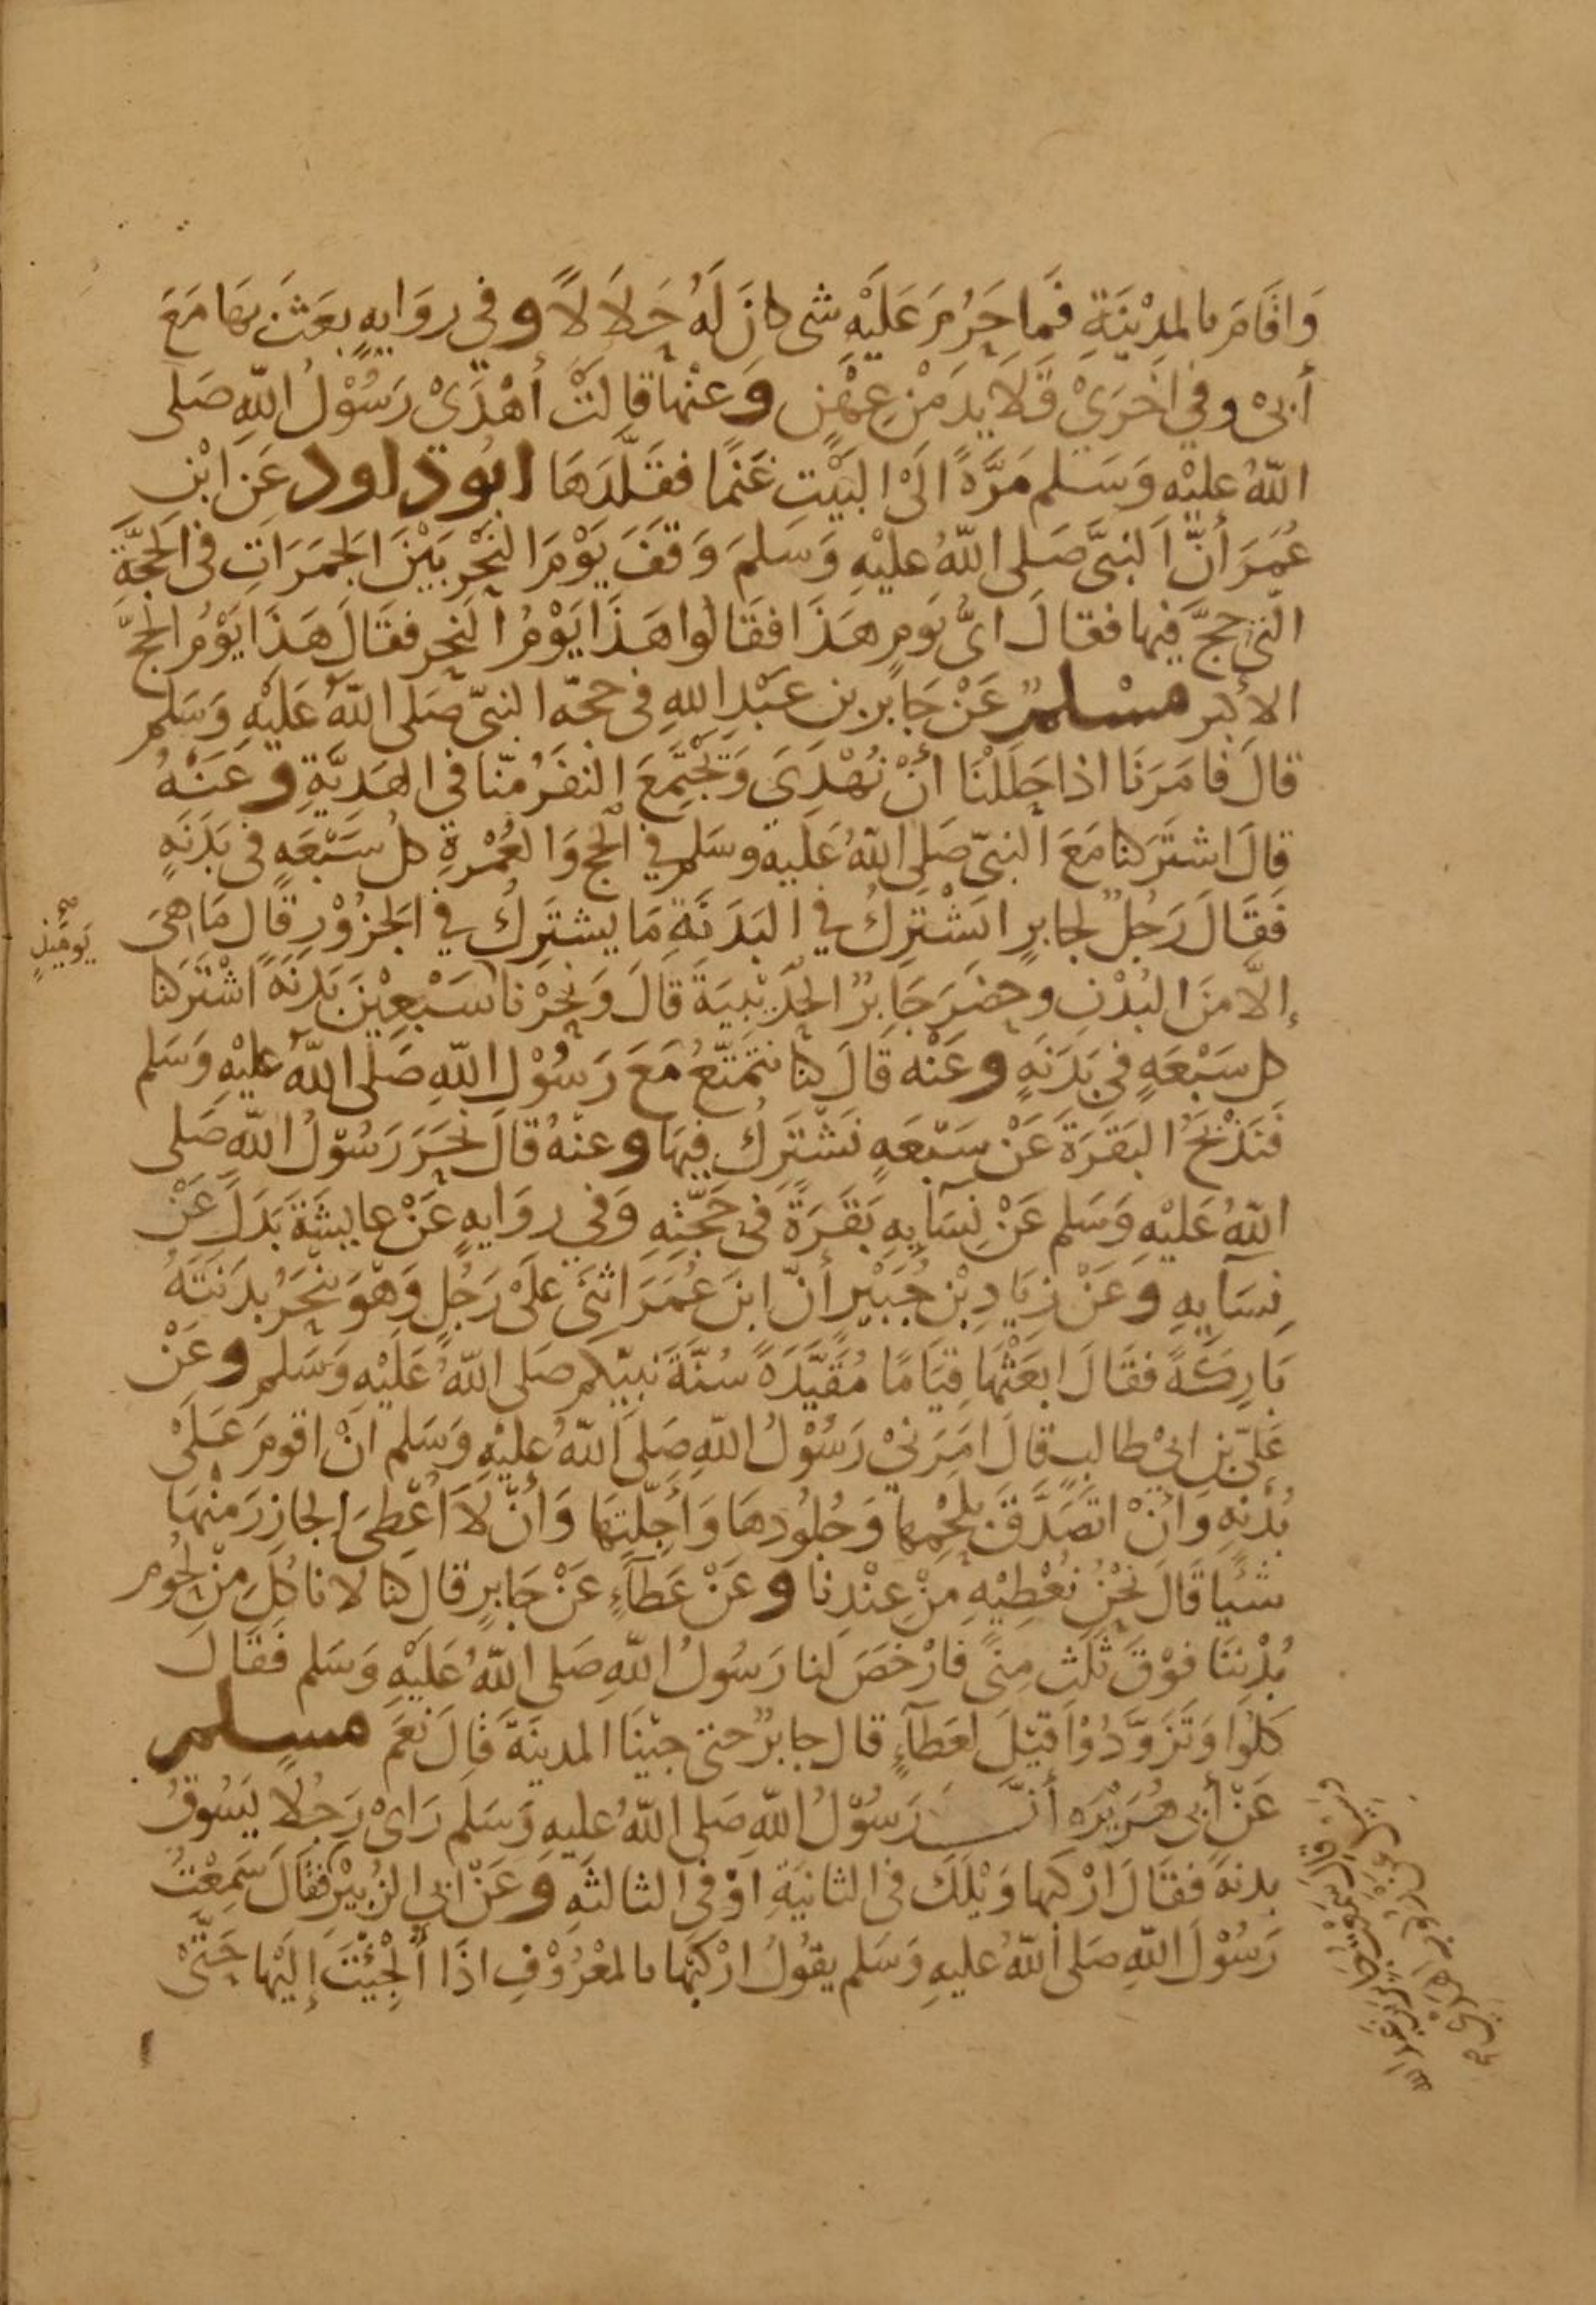 وَاقَامَ بالمَدِيْنَةِ فَمَا حَرُمَ عَلَيْهِ شي كانَ لَهُ حَلاَلاً وفي روَايهٍ بعَثَ بهَا مَعَ
أبىْ وفي اخْرَيْ قَلَايدَ مْنْ عِهْنٍ وَعنْها قالَتْ أهْدَىْ رَسُوْلُ اللهِ صَلى
اللهُ عليْهِ وَسَلم مَرَّةً الَىْ البَيْتِ غَنَمًا فقَلَّدَهَا ابُوداود عَن ابْنِ
عُمَرَ أنَّ النبيَّ صَلى اللهُ عليْهِ وَسَلمَ وَقفَ يَوْمَ النحْرِ بَيْنَ الجَمَرَاتِ في الحَجَّةِ
التي حجَّ فيها فقالَ ايُّ يَومٍ هَذَا فقَالُوا هَذَا يَوْمُ النحر فقَالَ هَذَا يَوْمُ الحجّ
الاكبر مسْلمٌ عَنْ جَابر بن عَبْدِ اللهِ في حجّه النبيّ صَلى اللهُ عَليْهِ وَسَلم
قالَ فامَرَنَا اذا حَلَلْنَا أنْ نُهْدِيَ وَيَجْتَمِعَ النفَرُ منّا في الهَديَّةِ وعَنْهُ
قالَ اشتَرَكنا مَعَ النبيّ صَلى اللهُ عَليه وسَلم في الحج وَالعُمْرةِ كلُ سَبْعَهٍ في بَدَنَهٍ
فَقَالَ رَجُلٌ لجابرٍ ايَشْتَرِكُ في البَدَنَةِ مَا يشتَرِكُ في الجَزُوْرِ قَال مَا هىَ
إلاَّ منَ البُدْنِ وحضَرَ جَابرٌ الحُدَيْبيَةَ قالَ وَنحَرْنا سَبْعِيْنَ بَدَنَهً اشْتَرَكنا
يَومَئِذٍ صح
كل سَبْعَهٍ في بَدَنَهٍ وعَنْه قَالَ كنا نتَمَتّعُ مَعَ رَسُوْل اللهِ صَلى اللهُ عليْهِ وَسَلم
فَنَذْبَحُ البَقَرَةَ عَنْ سَبْعَهٍ نَشْتَرَكُ فيهَا وعنْهُ قالَ نحَرَ رَسُوْلُ اللهِ صَلى
اللهُ عَليْهِ وَسَلم عَنْ نِسَايهِ بَقَرَةً في حَجَّتِهِ وَفي روَايهٍ عَنْ عايشَةَ بَدَلَ عَنْ
نِسَآيهِ وعَنْ زيَادِ بْن جُبَيْرٍ أنَّ ابنَ عُمَرَ اتَىَ علَىْ رَجُلٍ وَهوَ ينْحَرُ بدَنَتَهُ
بَارِكَةً فقَالَ ابعَثْهَا قِيَامًا مُقَيَّدَةً سُنَّةَ نَبِيّكم صَلى اللهُ عَليْهِ وَسَلم وعَنْ
عَليّ بن ابيْ طالبٍ قالَ امَرَنيْ رَسُوْلُ اللهِ صَلى اللهُ عليْهِ وَسَلم انْ اقومَ عَلَىْ
بُدْنِهِ وَانْ اتَصَدَّقَ بلحْمِها وَجُلُودهَا وَأجِلَّتِهَا وَأنْ لَا أعْطىَ الجازِرَ منْهَا
شَيْا قَالَ نَحْنُ نُعْطِيْهِ مِنْ عِنْدِنا وعَنْ عَطآءٍ عَنْ جَابرٍ قال كنا لا ناكُل مِنْ لحُومِ
بُدْننَا فوْقَ ثَلثِ مِنىً فارْخَصَ لنا رَسُولُ اللهِ صَلى اللهُ عَليْهِ وَسَلم فقَالَ
كلُوا وَتَزَوَّدُوْا قيْلَ لعَطآءٍ قالَ جابرٌ حتى جيْنَا المدينَةَ قَالَ نعَمْ مسلم
عَنْ أبي هُرَيْرَه أنَّ رَسُوْلَ اللهِ صَلى اللهُ عليهِ وَسَلم رَاىْ رَجُلًا يَسُوقُ
بدنةً فقَالَ ارْكبها وَيْلَكَ في الثانيَةِ اوْ في الثالثَهِ وعَنْ ابي الزُبيْر فقَالَ سَمِعْتُ
رَسُوْلَ اللهِ صَلى اللهُ عليهِ وَسَلم يقوُلُ ارْكَبْها بالمعْرُوْفِ اذَا ألْجِئْتَ إلَيْهَا حَتَّىْ